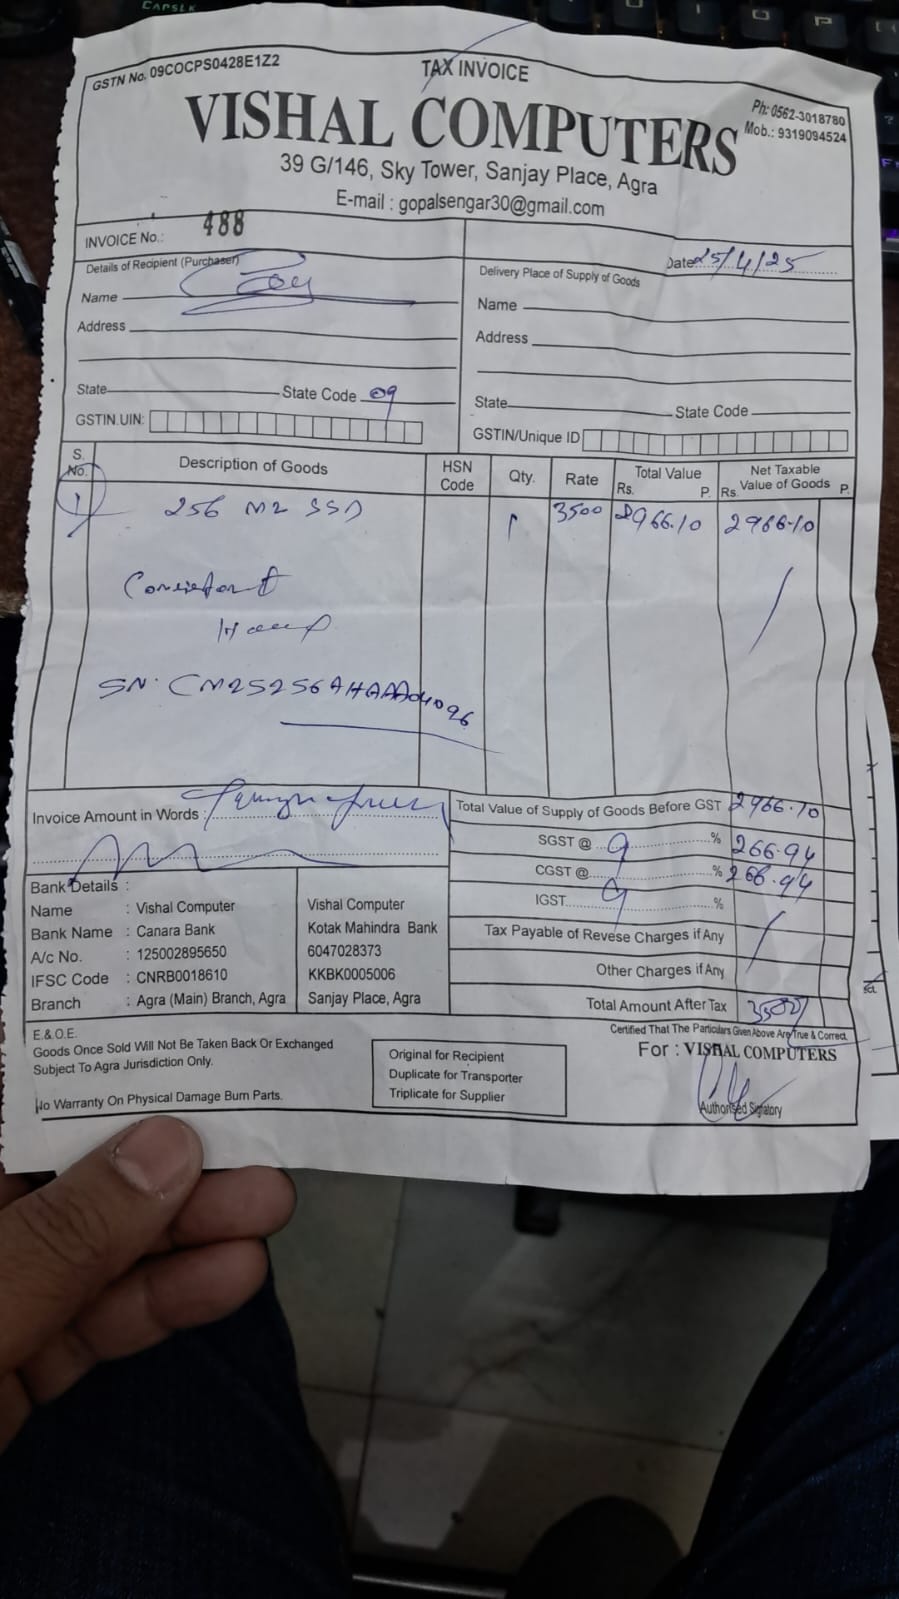 CAPSLK
GSTN No. 09COCPS0428E1Z2
TAX INVOICE
Ph: 0562-3018780
Mob.: 9319094524
VISHAL COMPUTERS
39 G/146, Sky Tower, Sanjay Place, Agra
E-mail : gopalsengar30@gmail.com
INVOICE No.: 488
Date 25/4/25
Details of Recipient (Purchaser)
Delivery Place of Supply of Goods
Name
Name
Address
Address
State State Code 09
State State Code
GSTIN.UIN:
GSTIN/Unique ID
S. No. Description of Goods HSN Code Qty. Rate Total Value Rs. P. Net Taxable Value of Goods Rs. P.
1 256 M2 SSD 1 3500 2966.10 2966.10
SN. CM2S256AHAAA04096
Invoice Amount in Words :
Total Value of Supply of Goods Before GST 2966.10
SGST @ 9 % 266.94
CGST @ 9 % 266.94
IGST %
Tax Payable of Revese Charges if Any
Other Charges if Any
Total Amount After Tax 3500/
Bank Details :
Name : Vishal Computer Vishal Computer
Bank Name : Canara Bank Kotak Mahindra Bank
A/c No. : 125002895650 6047028373
IFSC Code : CNRB0018610 KKBK0005006
Branch : Agra (Main) Branch, Agra Sanjay Place, Agra
E.& O.E.
Goods Once Sold Will Not Be Taken Back Or Exchanged
Subject To Agra Jurisdiction Only.
No Warranty On Physical Damage Burn Parts.
Original for Recipient
Duplicate for Transporter
Triplicate for Supplier
Certified That The Particulars Given Above Are True & Correct
For : VISHAL COMPUTERS
Authorised Signatory